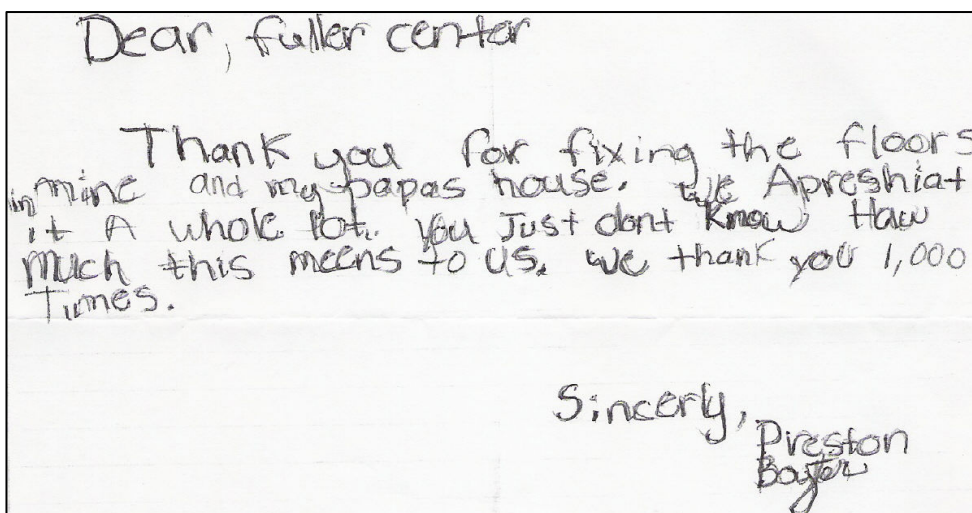 Dear, fuller center
Thank you for fixing the floors
in mine and my papas house. we Apreshiat
it A whole lot. you Just dont Know Haw
much this meens to us. we thank you 1,000
Times.
Sincerly,
Preston